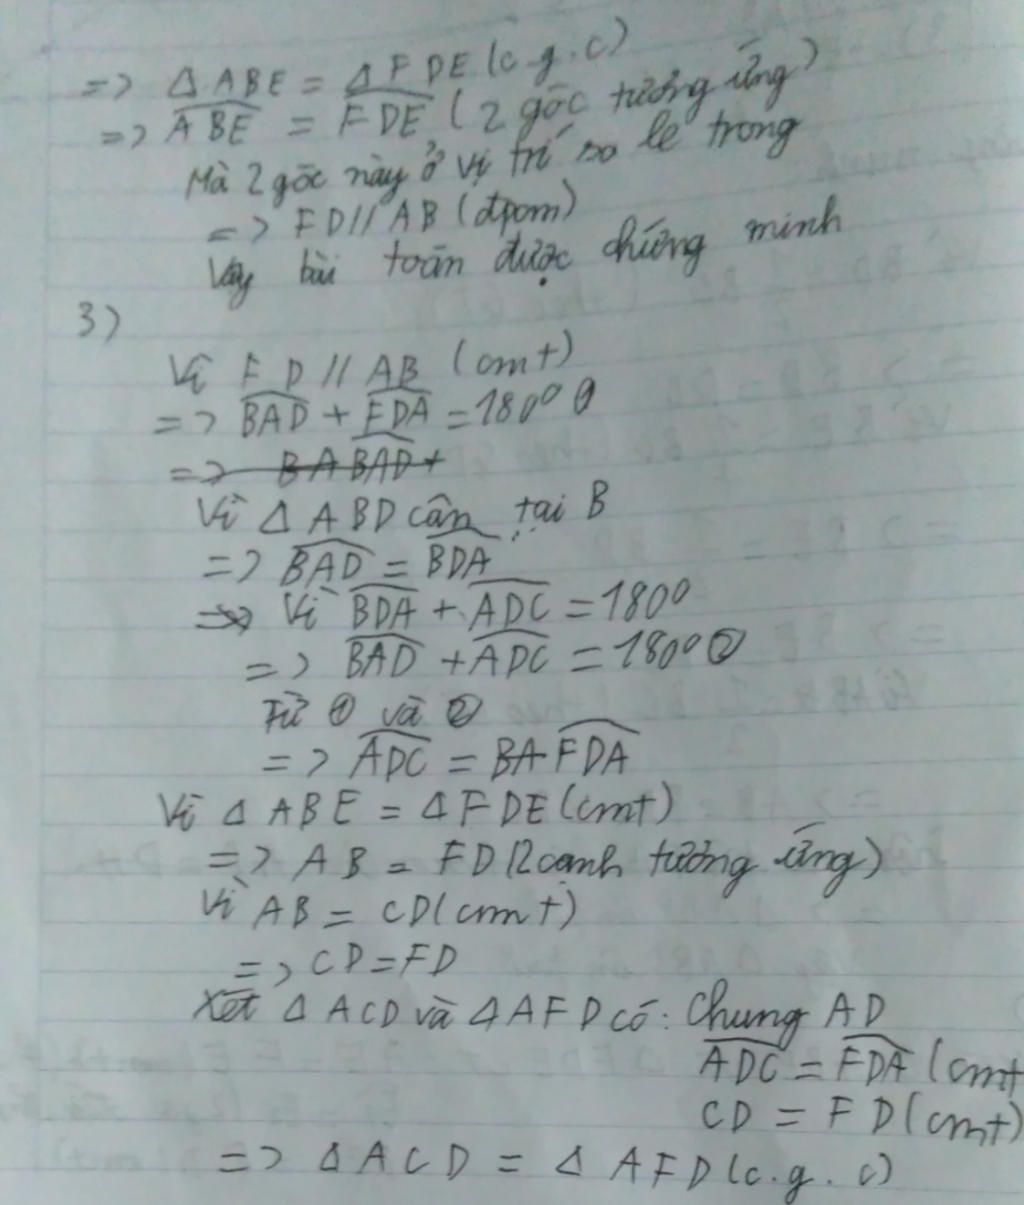 => Δ ABE = Δ FDE (c.g.c)
=> ABE = FDE (2 góc tương ứng)
Mà 2 góc này ở vị trí so le trong
=> FD // AB (đpcm)
Vậy bài toán được chứng minh
3)
Vì FD // AB (cmt)
=> BAD + FDA = 180° ①
=> BA BAD +
Vì Δ ABD cân tại B
=> BAD = BDA
=> Vì BDA + ADC = 180°
=> BAD + ADC = 180° ②
Từ ① và ②
=> ADC = BA FDA
Vì Δ ABE = Δ FDE (cmt)
=> AB = FD (2 cạnh tương ứng)
Vì AB = CD (cmt)
=> CD = FD
Xét Δ ACD và Δ AFD có: Chung AD
ADC = FDA (cmt
CD = FD (cmt)
=> Δ ACD = Δ AFD (c.g.c)